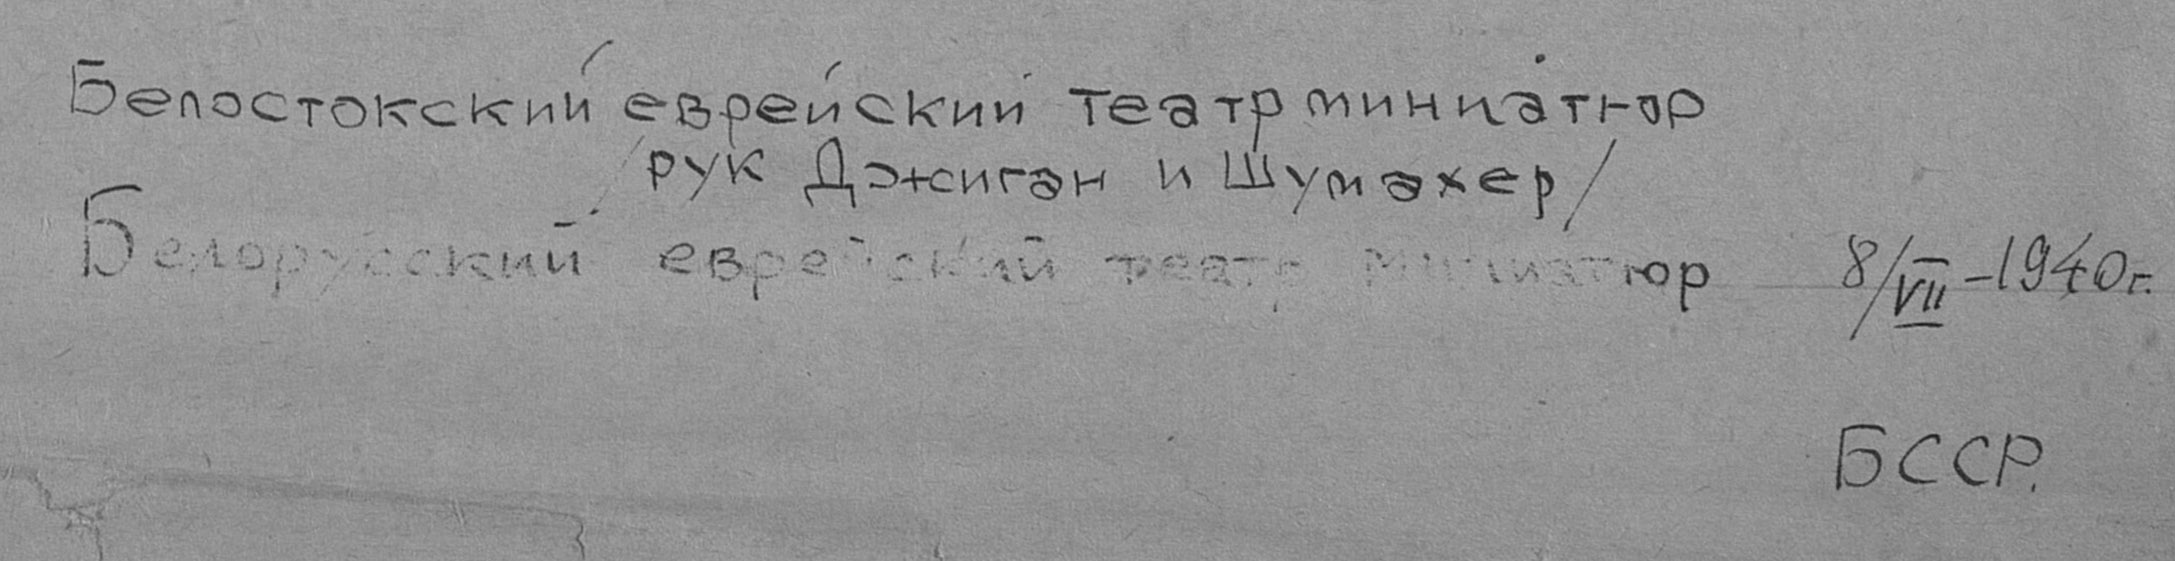 Белостокский еврейский театр миниатюр
/рук Джиган и Шумахер/
Белорусский еврейский театр миниатюр 8/VII-1940г.
БССР.